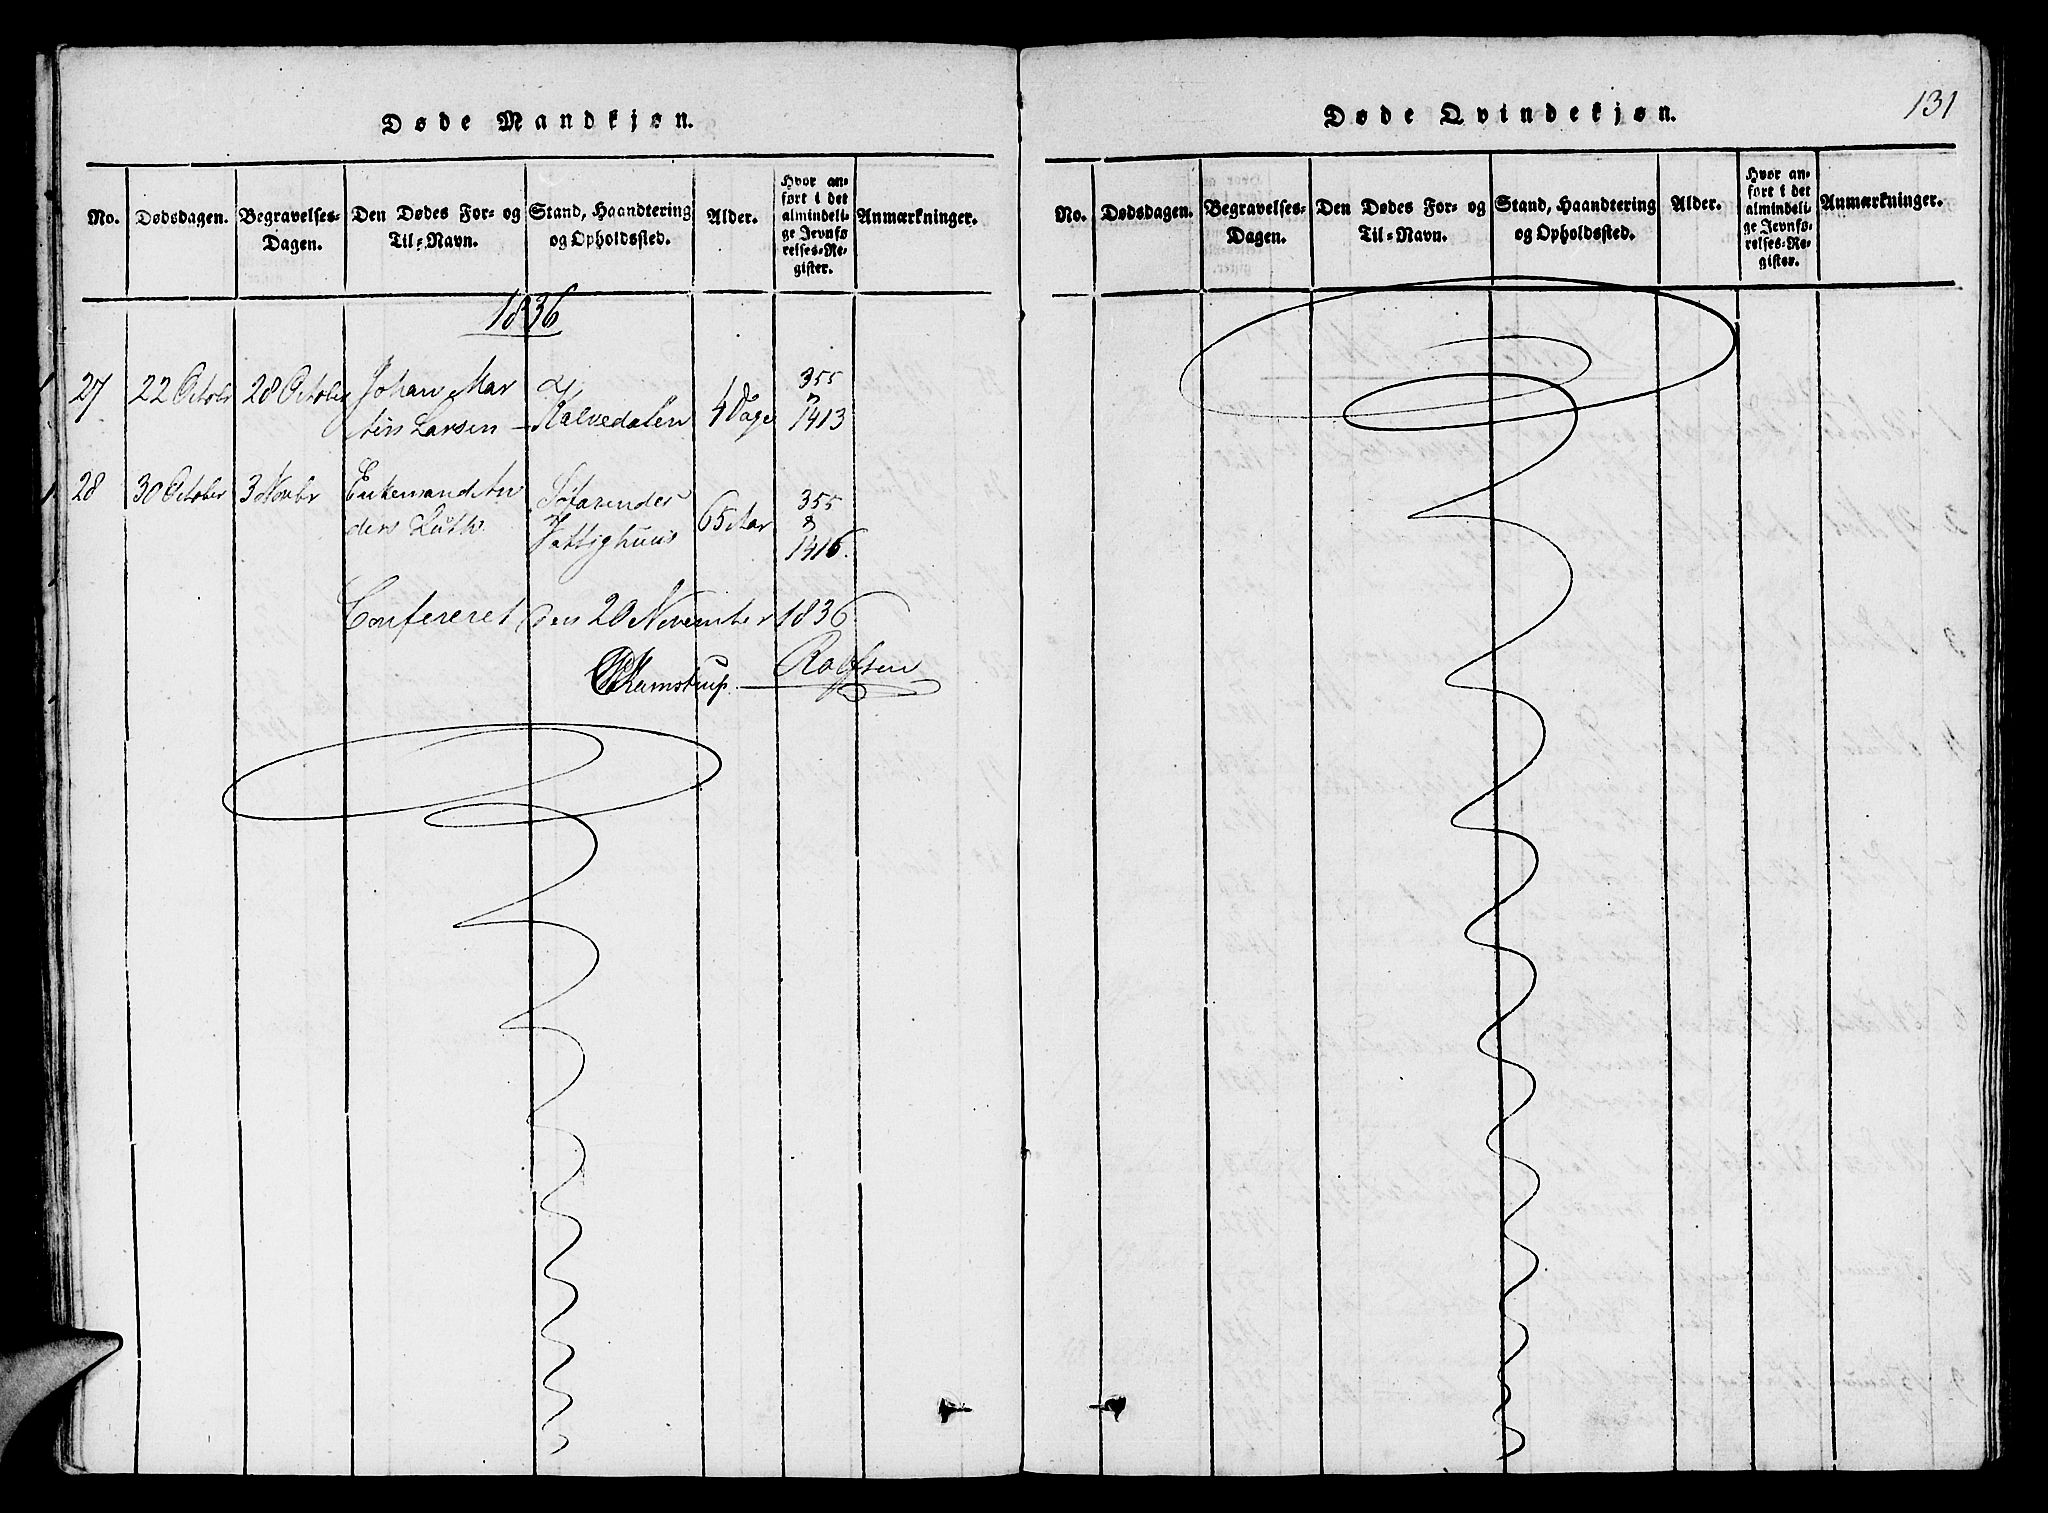 Døde Mandkjøn.
No. Dødsdagen. Begravelses-Dagen. Den Dødes For- og Til-Navn. Stand, Haandtering og Opholdssted. Alder. Hvor anført i det almindelige Jevnførelses-Register. Anmærkninger.
1836
27 22 Octobr 28 October Johan Mar 355
tin Larsen - Kalvedalen 4 Dage 1413
28 30 October 3 Novbr Enkemand An 355
ders Lüth 65 Aar
Fattighuus 1416.
Confereret den 20 November 1836
Kamstrup. Rolfsen
Døde Qvindekjøn.
131
No. Dødsdagen. Begravelses-Dagen. Den Dødes For- og Til-Navn. Stand, Haandtering og Opholdssted. Alder. Hvor anført i det almindelige Jevnførelses-Register. Anmærkninger.